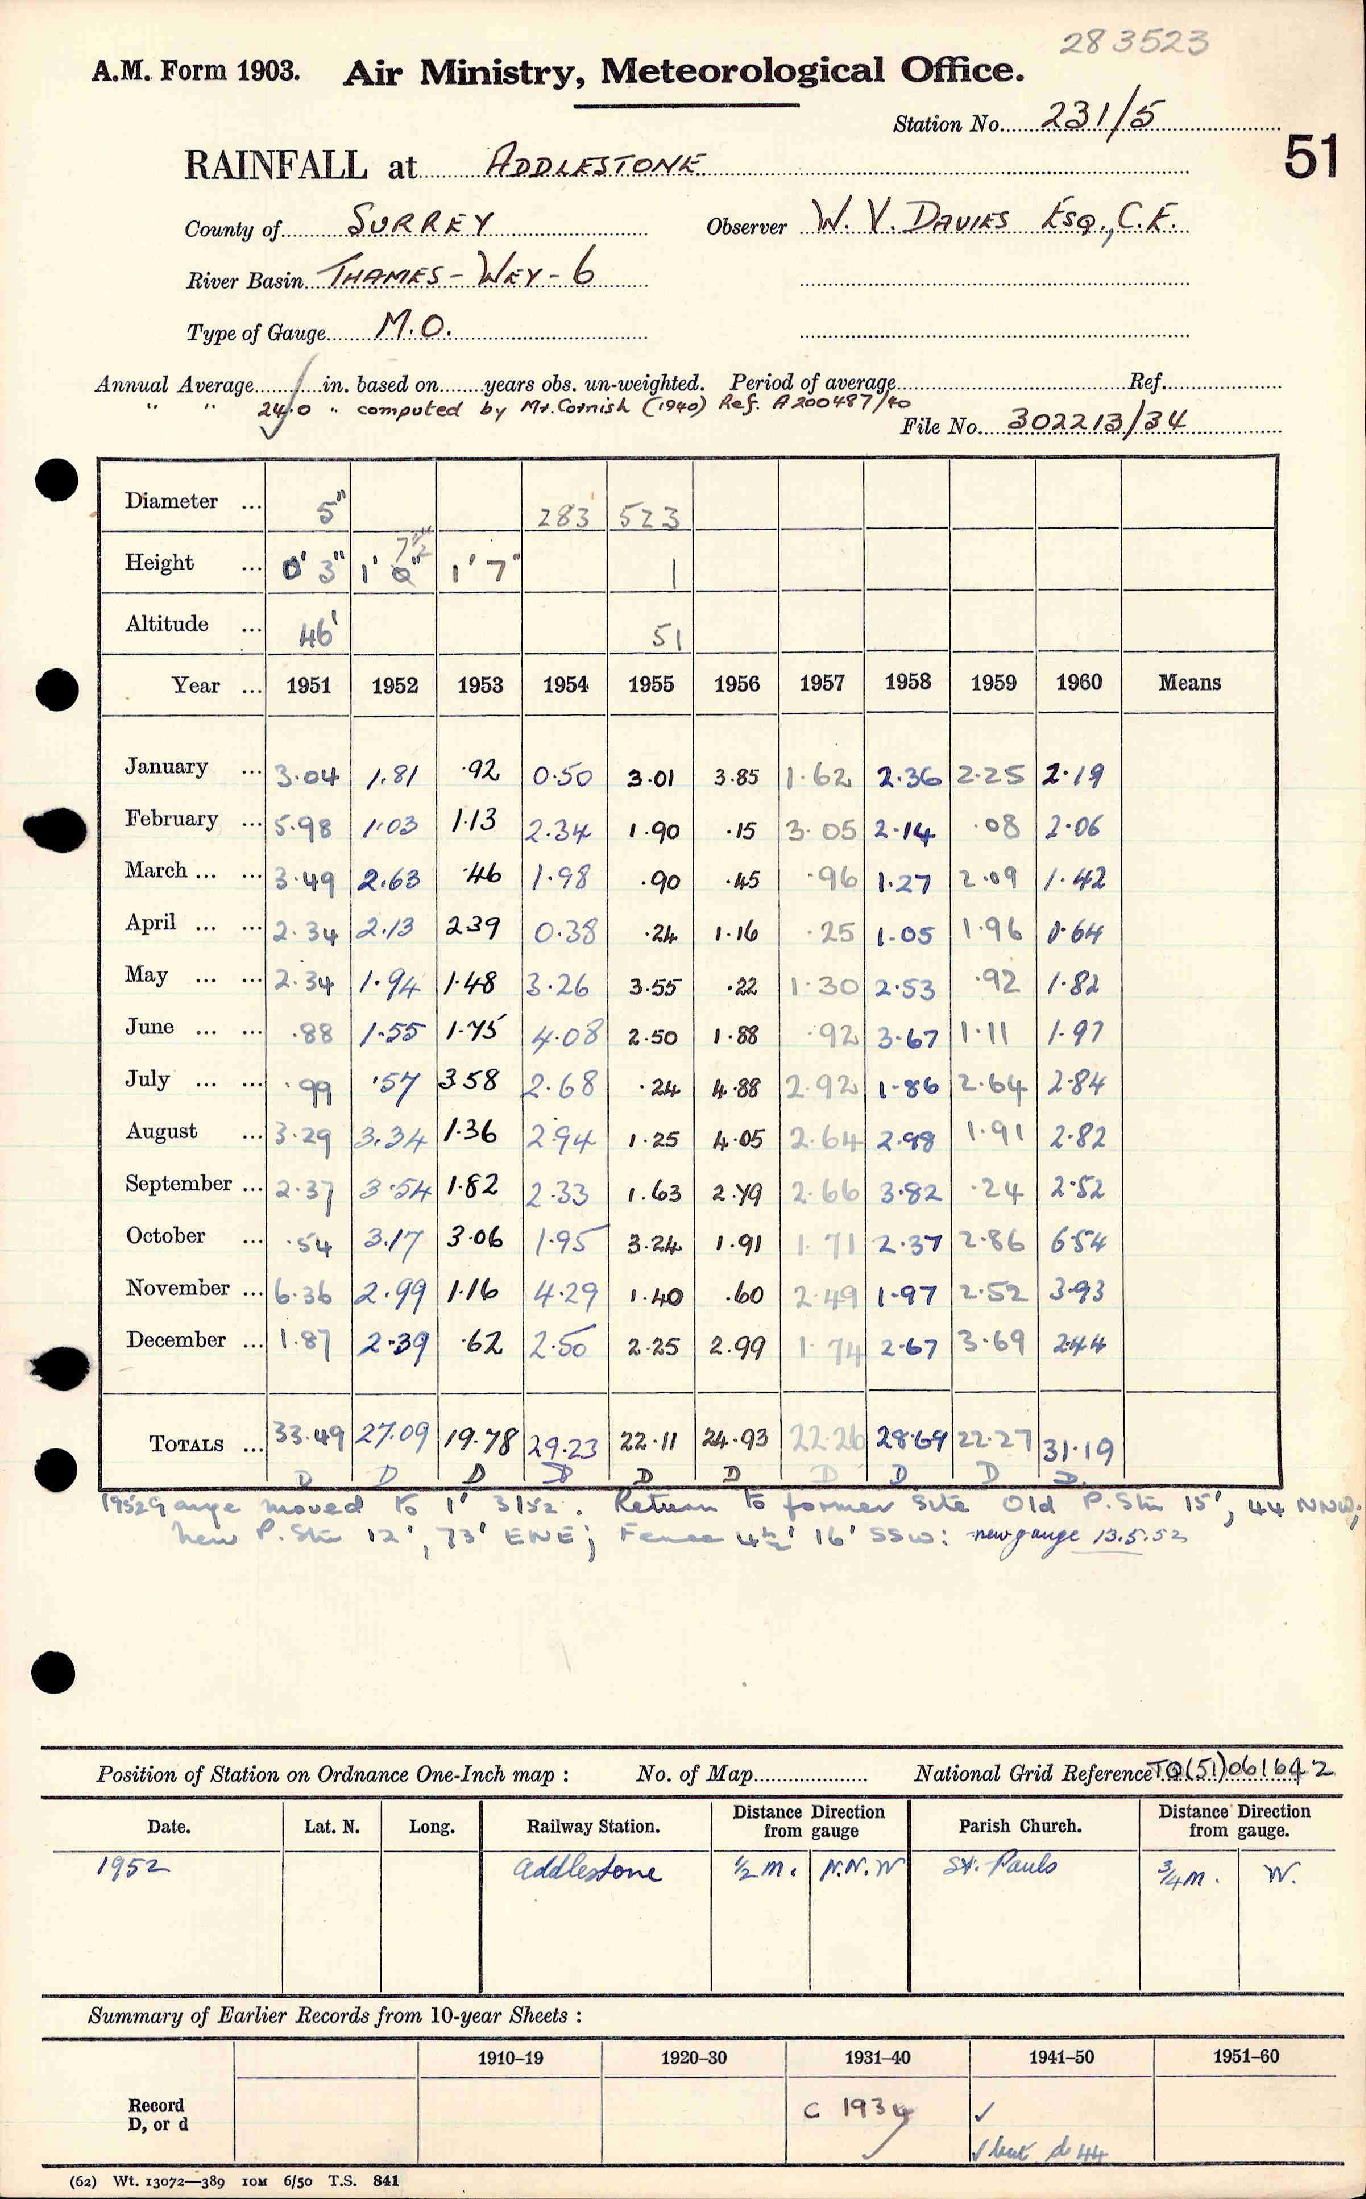 283523
A.M. Form 1903. Air Ministry, Meteorological Office.
Station No. 231/5
51
RAINFALL at ADDLESTONE
County of SURREY Observer W. V. DAVIES ESQ., C.E.
River Basin THAMES - WEY - 6
Type of Gauge M.O.
Annual Average in. based on years obs. un-weighted. Period of average Ref.
" " 24.0 " computed by Mr. Cornish (1940) Ref. A200487/40
File No. 302213/34
Diameter ... 5" 283 523
Height ... 0' 3" 1' 0" 7½" 1' 7" 1
Altitude ... 46' 51
Year ... 1951 1952 1953 1954 1955 1956 1957 1958 1959 1960 Means
January ... 3.04 1.81 .92 0.50 3.01 3.85 1.62 2.36 2.25 2.19
February ... 5.98 1.03 1.13 2.34 1.90 .15 3.05 2.14 .08 2.06
March ... ... 3.49 2.63 .46 1.98 .90 .45 .96 1.27 2.09 1.42
April ... ... 2.34 2.13 2.39 0.38 .24 1.16 .25 1.05 1.96 0.64
May ... ... 2.34 1.94 1.48 3.26 3.55 .22 1.30 2.53 .92 1.82
June ... ... .88 1.55 1.75 4.08 2.50 1.88 .92 3.67 1.11 1.97
July ... ... .99 .57 3.58 2.68 .24 4.88 2.92 1.86 2.64 2.84
August ... 3.29 3.34 1.36 2.94 1.25 4.05 2.64 2.98 1.91 2.82
September ... 2.37 3.54 1.82 2.33 1.63 2.79 2.66 3.82 .24 2.52
October ... .54 3.17 3.06 1.95 3.24 1.91 1.71 2.37 2.86 6.54
November ... 6.36 2.99 1.16 4.29 1.40 .60 2.49 1.97 2.52 3.93
December ... 1.87 2.39 .62 2.50 2.25 2.99 1.74 2.67 3.69 2.44
TOTALS ... 33.49 27.09 19.78 29.23 22.11 24.93 22.26 28.69 22.27 31.19
D D D D D D D D D D
1952 Gauge moved to 1' 31/52. Return to former site Old P. Stn 15', 44 NNW;
New P. Stn 12', 73' ENE; Fence 4½' 16' SSW: new gauge 13.5.52
Position of Station on Ordnance One-Inch map : No. of Map National Grid Reference TQ(51)061642
Date. Lat. N. Long. Railway Station. Distance Direction from gauge Parish Church. Distance Direction from gauge.
1952 Addlestone ½ m. N.N.W St. Pauls ¾ m. W.
Summary of Earlier Records from 10-year Sheets :
1910–19 1920–30 1931–40 1941–50 1951–60
Record D, or d C 1934 ✓
✓ but d 44
(62) Wt. 13072—389 10M 6/50 T.S. 841